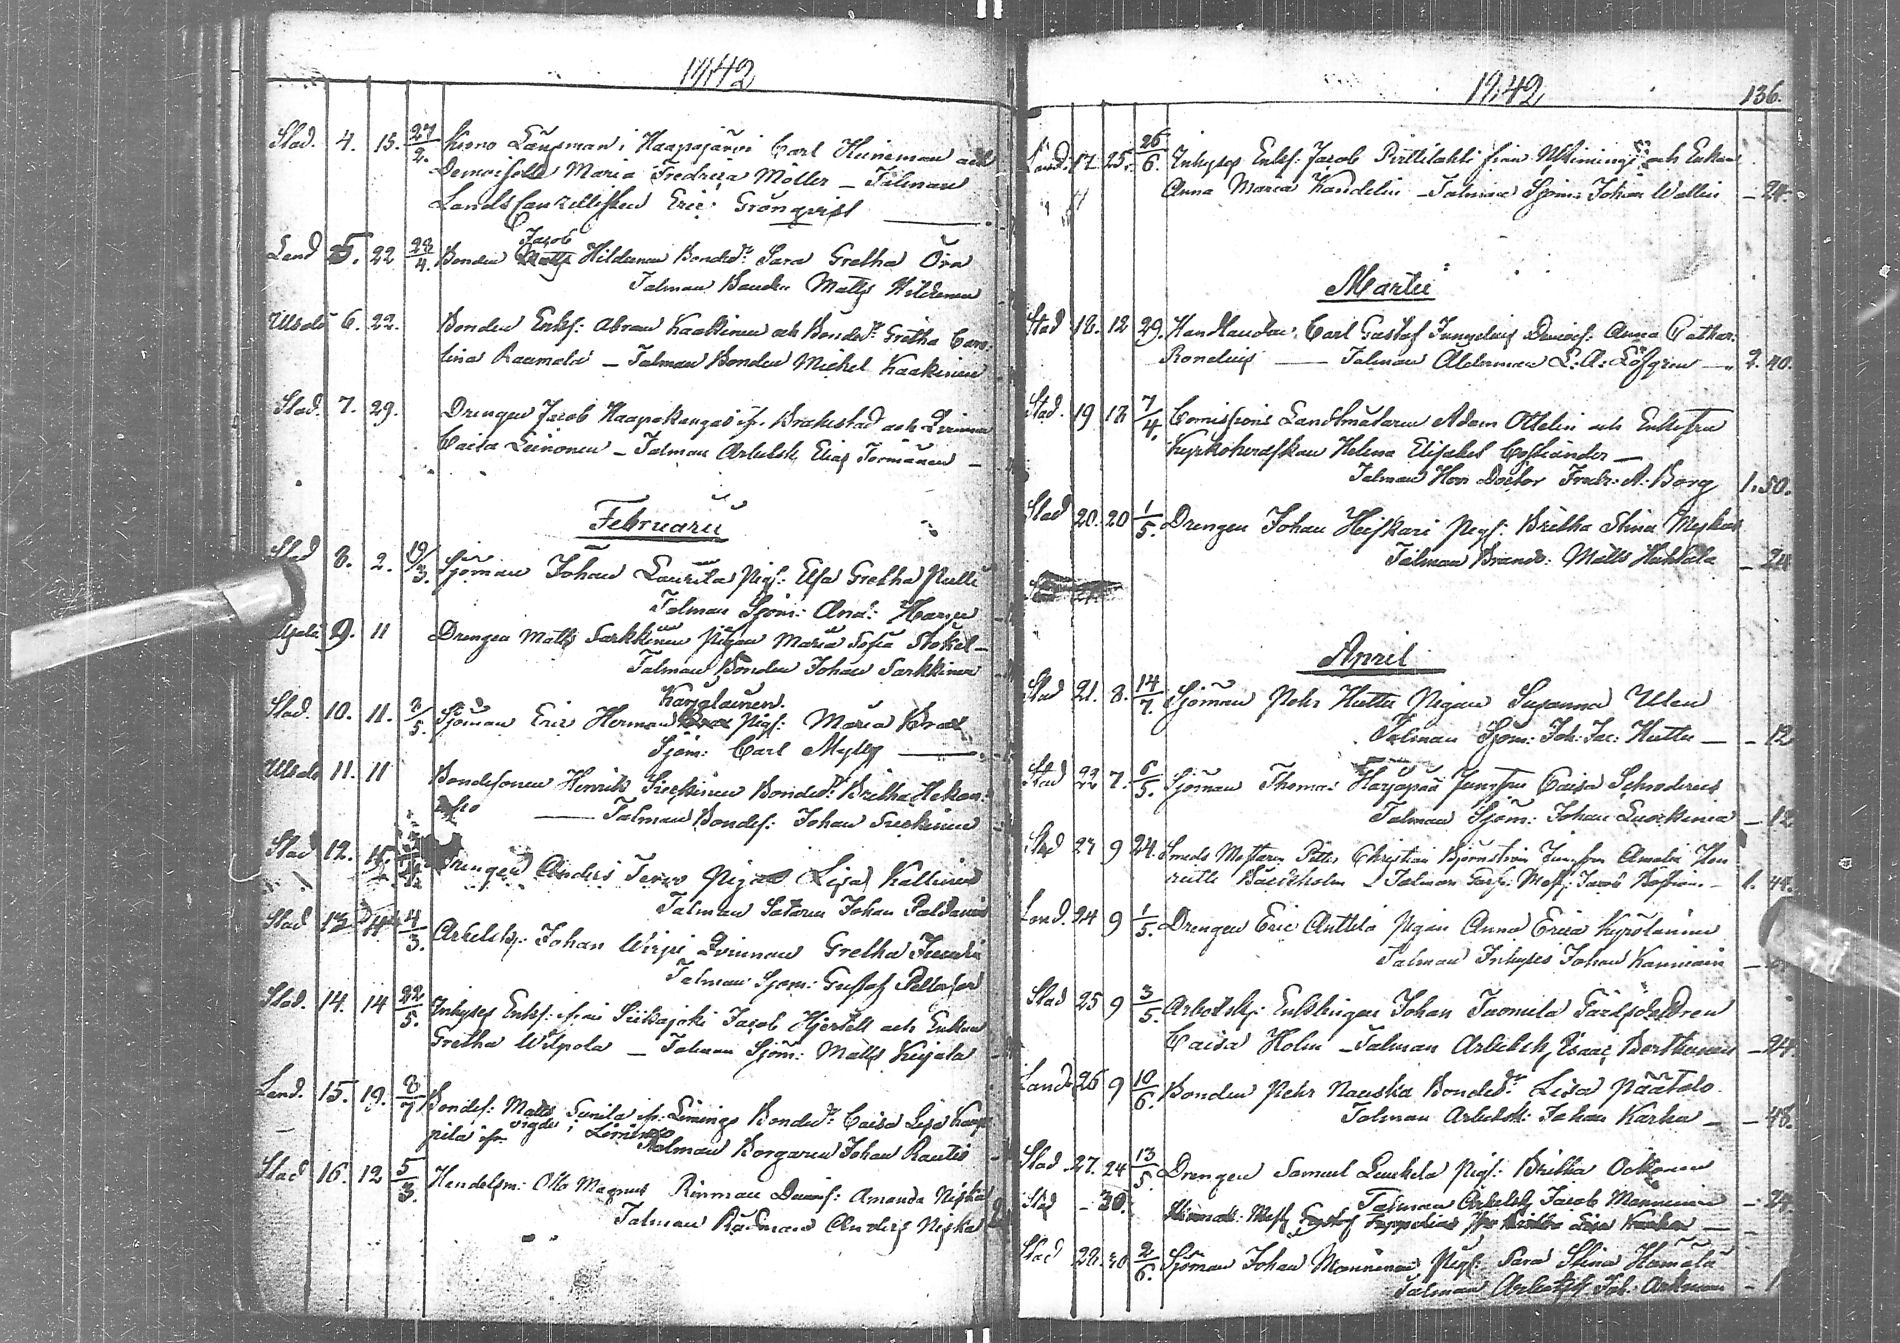 1842
Stad. 4. 15. 27/2. Krono Länsman i Haapajärvi Carl Heineman och
Demoiselle Maria Fredrica Möller – Talman
Lands Cancellisten Eric Grönqvist
Jacob
Land 5. 22 28/4. Bonden Hildunen Bonded:r Sara Gretha Övra
Talman Bonden Matts Hildunen
6. 22. Bonden Enkl: Abram Kaakinen och Bonded:r Gretha Caro-
lina Raumala – Talman Bonden Michel Kaakinen
Stad. 7. 29. Drengen Jacob Haapakangas fr. Brahestad och Qvinnan
Caisa Leinonen – Talman Arbetsk. Elias Törmänen –
Februarii
Stad 8. 2. 19/3. Sjöman Johan Laurila Pig: Elsa Gretha Pulli
Talman Sjöm: And: Harju
9. 11 Drengen Matts Sarkkinen Pigan Maria Sofia Stökel –
Talman Bonden Johan Sarkkinen
Karjalainen.
Stad. 10. 11. 2/5. Sjöman Eric Herman Pig: Maria
Sjöm: Carl Mylly
11. 11 Bondesonen Henrik Bonded:r Britha
Talman Bondes: Johan
Stad 12. 15. Drengen Anders Tervo Pigan Lisa Kallinen
Talman Johan Paldanius
Stad 13 14 4/3. Arbetsk: Johan Wirpi Qvinnan Gretha
Talman Sjöm: Gustaf Petterson
Stad. 14. 14 22/5. Inhyses Enkl: ifrån Siikajoki Jacob Hjertell och Enkan
Gretha Wilpola – Talman Sjöm: Matts Kujala
Land. 15. 19. 8/7 Bondes: Matts Junila fr. Limingo Bonded:r Caisa Lisa Kaup-
pila vigde i Limingo
Talman Borgaren Johan Rautio
Stad 16. 12 5/3. Handelsm: Otto Magnus Rinman Demois: Amanda Niska
Talman Rådman Anders Niska
1842 136.
Land. 17 25. 26/6. Inhyses Enkl: Jacob Pirttilahti från och Enkan
Anna Maria Kandelin – Talman Sjöm: Johan Wallin – 24.
Martii
Stad 18. 12 29. Handlanden Carl Gustaf Jungelius Demois: Anna Cathar:
Rondelius – Talman Alderman L: A: Löfgren – 2. 40.
Stad. 19 18 7/4. Comissions Landtmätaren Adam Ottelin och Enkefru
Kyrkoherdskan Helena Elisabet
Talman Herr Doctor Fredr: A: Borg 1. 50.
Stad 20. 20 1/5. Drengen Johan Heiskari Pig: Britha Stina
Talman Matts Huhtala – 24
April
Stad 21. 8. 14/7. Sjöman Pehr Hutta Pigan Susanna Ulen
Talman Sjöm: Joh: Jac: Hutta – 12
Stad 22 7. 6/5. Sjöman Thomas Harjapää Jungfru Caisa Schroderus
Talman Sjöm: Johan – 12
Stad 23 9 24. Smeds Mästaren Petter Christian Björnström Jungfru Amalia Hen
riette Backholm – Talman Jacob – 1. 44.
Land. 24 9 1/5. Drengen Eric Anttila Pigan Anna Erica Kyrölänen
Talman Inhyses Johan
Stad 25 9 3/5. Arbetsk: Enklingen Johan Juomula
Caisa Holm – Talman Arbetsk. Isaac – 24.
Land 26 9 10/6. Bonden Pehr Nauska Bonded:r Lisa Päätalo
Talman Arbetsk: Johan Karhu – 48.
Stad. 27. 24 13/5. Drengen Samuel Leuckela Pig: Britha
Talman Arbetsk. Jacob Manninen – 24.
Stad – 30. Gustaf
Stad 28. 30 2/6. Sjöman Johan Manninen Pig: Sara Stina Hämälä
Talman Arbetsk. Joh: